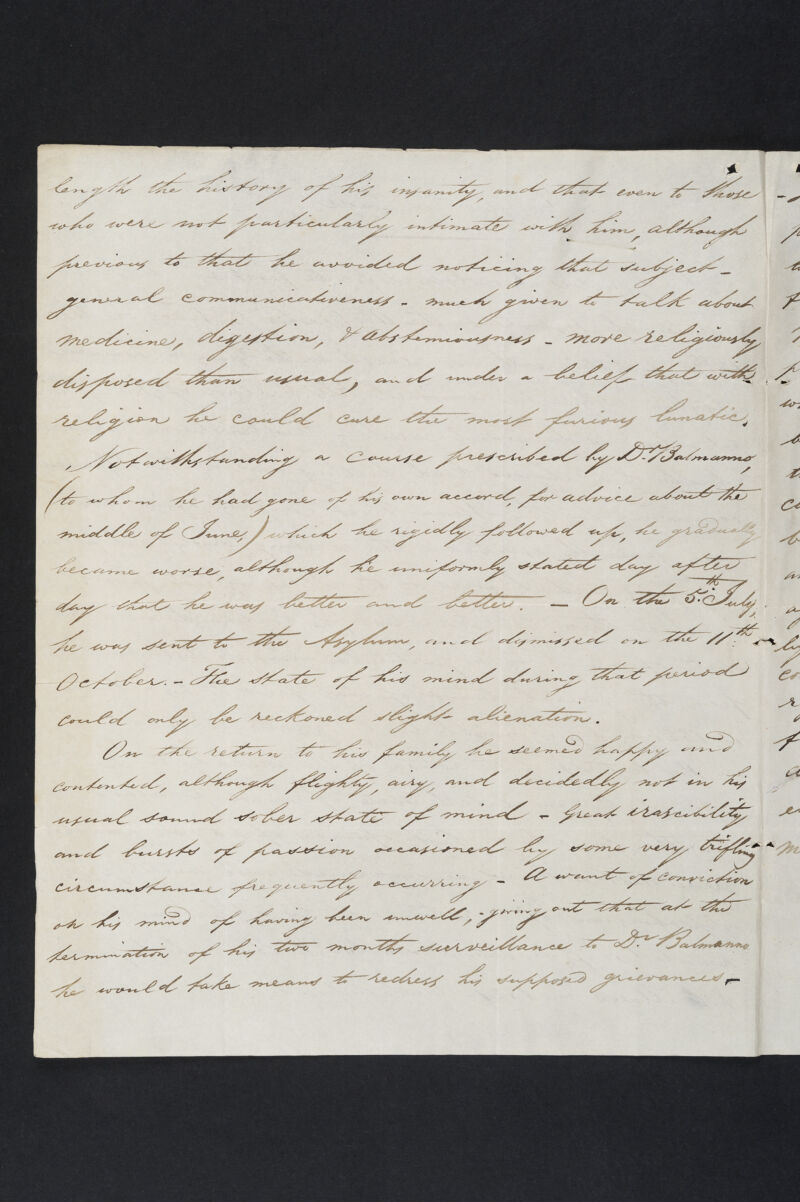 length the history of his insanity, and that even to those
who were not particularly intimate with him, although
previous to that he avoided noticing that subject -
general communicativeness - much given to talk about
medicine, digestion, & abstemiousness - more religiously
disposed than usual, and under a belief that with
religion he could cure the most furious lunatic.
Notwithstanding a course prescribed by Dr. Balmanno,
(to whom he had gone of his own accord, for advice about the
middle of June,) which he rigidly followed up, he gradually
became worse, although he uniformly stated day after
day that he was better and better. - On the 5th July,
he was sent to the Asylum, and dismissed on the 11th
October. - The state of his mind during that period
could only be reckoned slight alienation.
On the return to his family he seemed happy and
contented, although flighty, airy, and decidedly not in his
usual sound sober state of mind - Great irascibility
and bursts of passion occasioned by some very trifling
circumstance frequently occurring - A want of conviction
on his mind of having been unwell, - giving out that at the
termination of his two months surveillance to Dr. Balmanno
he would take means to redress his supposed grievances -